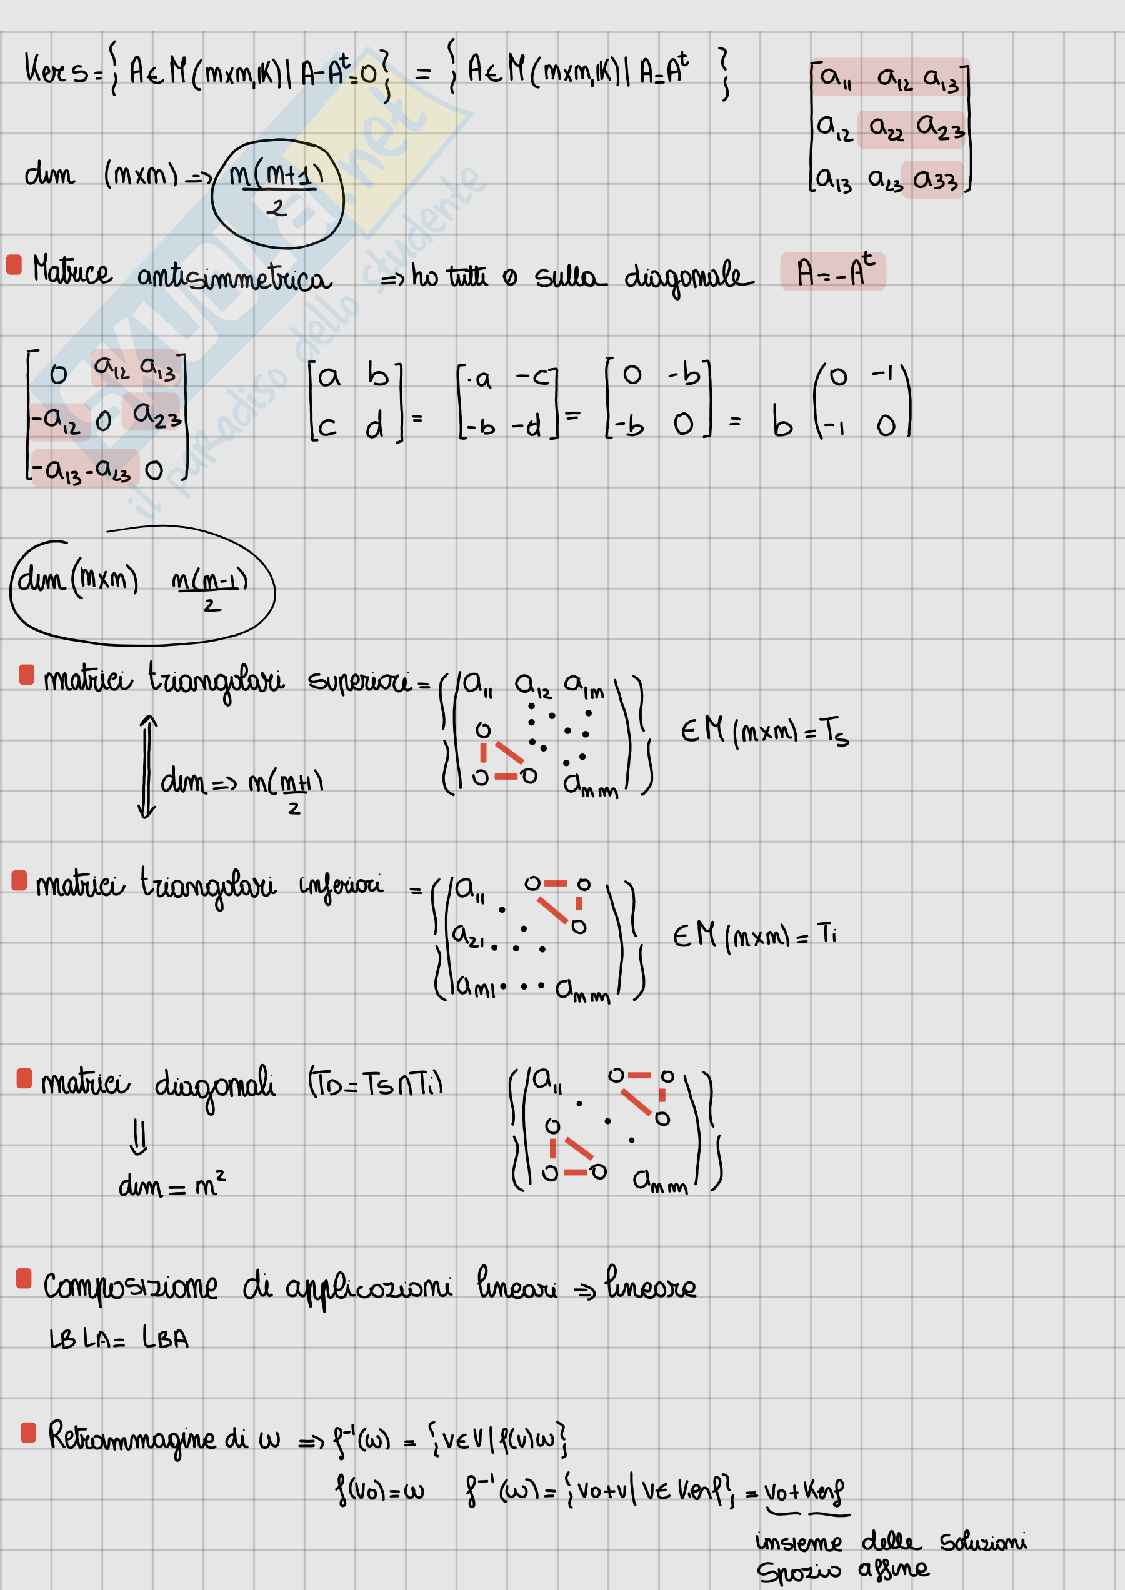 Ker S = { A ∈ M (m×m, K) | A-Aᵗ=0 } = { A ∈ M (m×m, K) | A=Aᵗ }
[ a11 a12 a13
a12 a22 a23
a13 a23 a33 ]
dim (m×m) => m(m+1)/2
Matrice antisimmetrica => ho tutti 0 sulla diagonale A=-Aᵗ
[ 0 a12 a13
-a12 0 a23
-a13 -a23 0 ]
[ a b
c d ] = [ -a -c
-b -d ] = [ 0 -b
-b 0 ] = b ( 0 -1
-1 0 )
dim (m×m) m(m-1)/2
matrici triangolari superiori = { ( a11 a12 a1m
0
0 0 amm ) } ∈ M (m×m) = Ts
dim => m(m+1)/2
matrici triangolari inferiori = { ( a11 0 0
a21 0
am1 ... amm ) } ∈ M (m×m) = Ti
matrici diagonali (TD = Ts ∩ Ti) { ( a11 0 0
0 0
0 0 amm ) }
⇓
dim = m²
Composizione di applicazioni lineari => lineare
LB LA = LBA
Retroimmagine di w => f⁻¹(w) = { v ∈ V | f(v) w }
f(v0) = w f⁻¹(w) = { v0+v | v ∈ Ker f } = v0 + Ker f
insieme delle soluzioni
spazio affine
SKUOLA.net
il paradiso dello studente